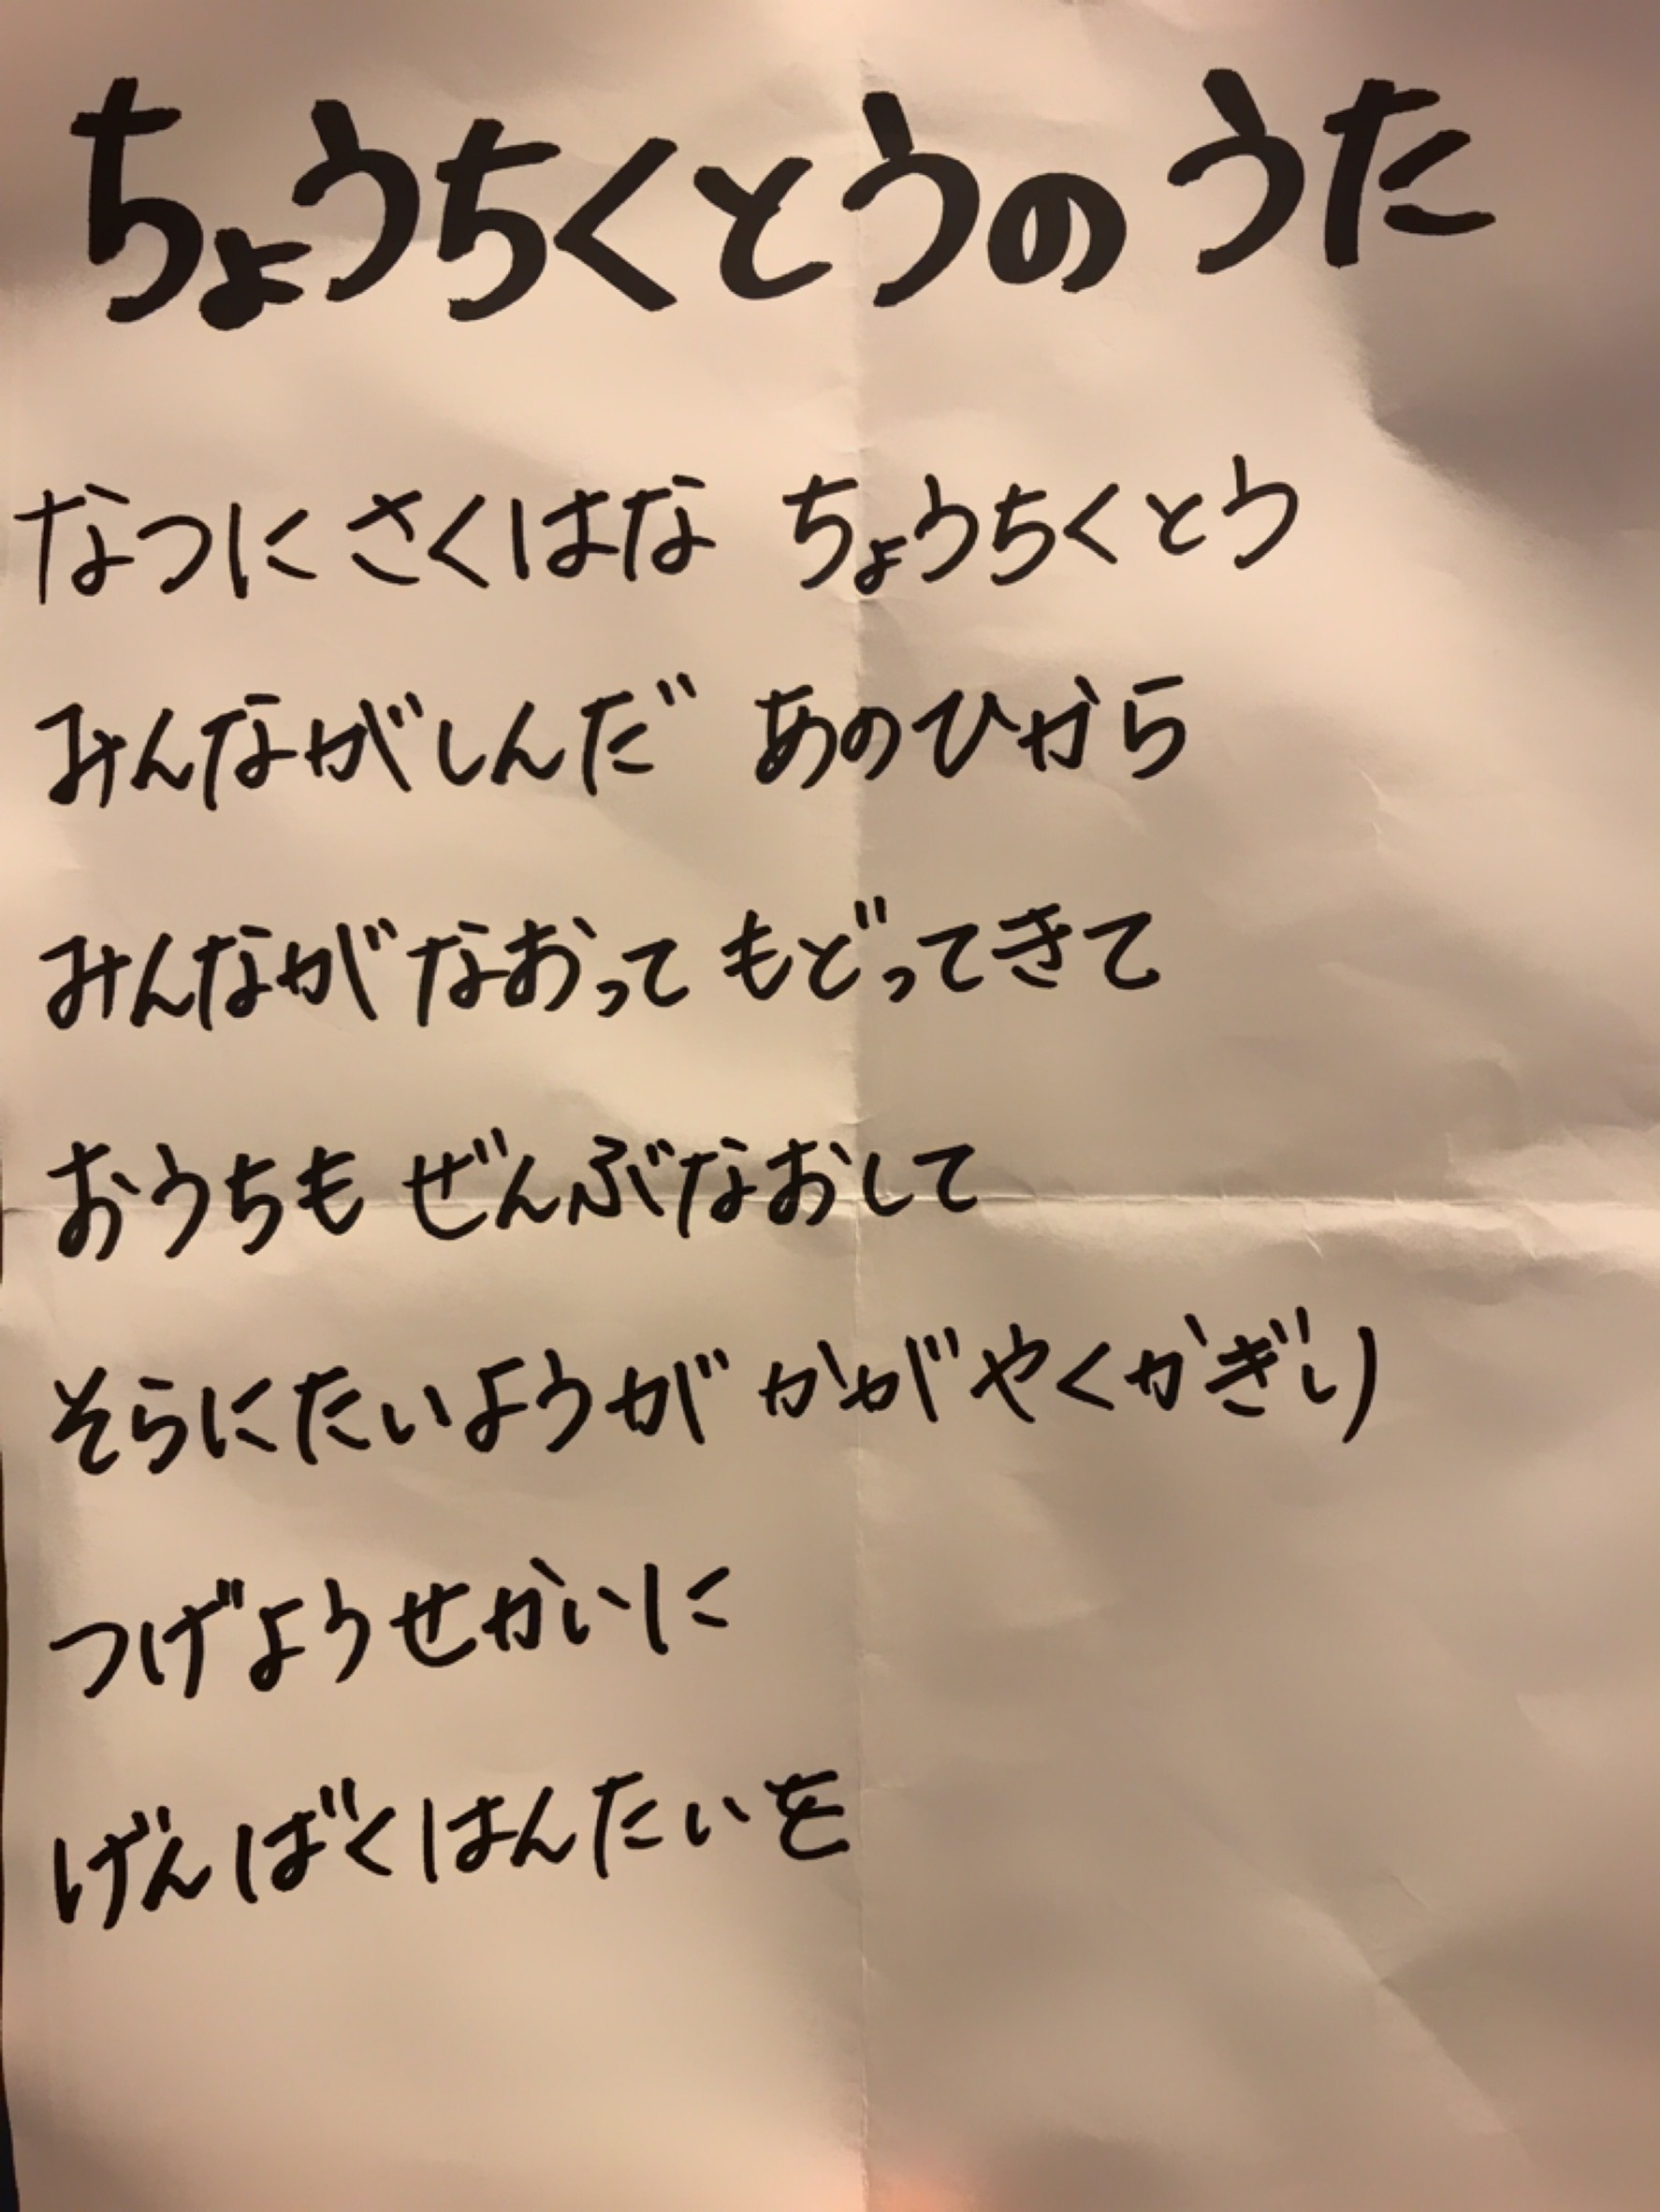 ちょうちくとうのうた
なつにさくはな ちょうちくとう
みんながしんだ あのひから
みんながなおって もどってきて
おうちも ぜんぶなおして
そらにたいようが かがやくかぎり
つげようせかいに
げんばくはんたいを